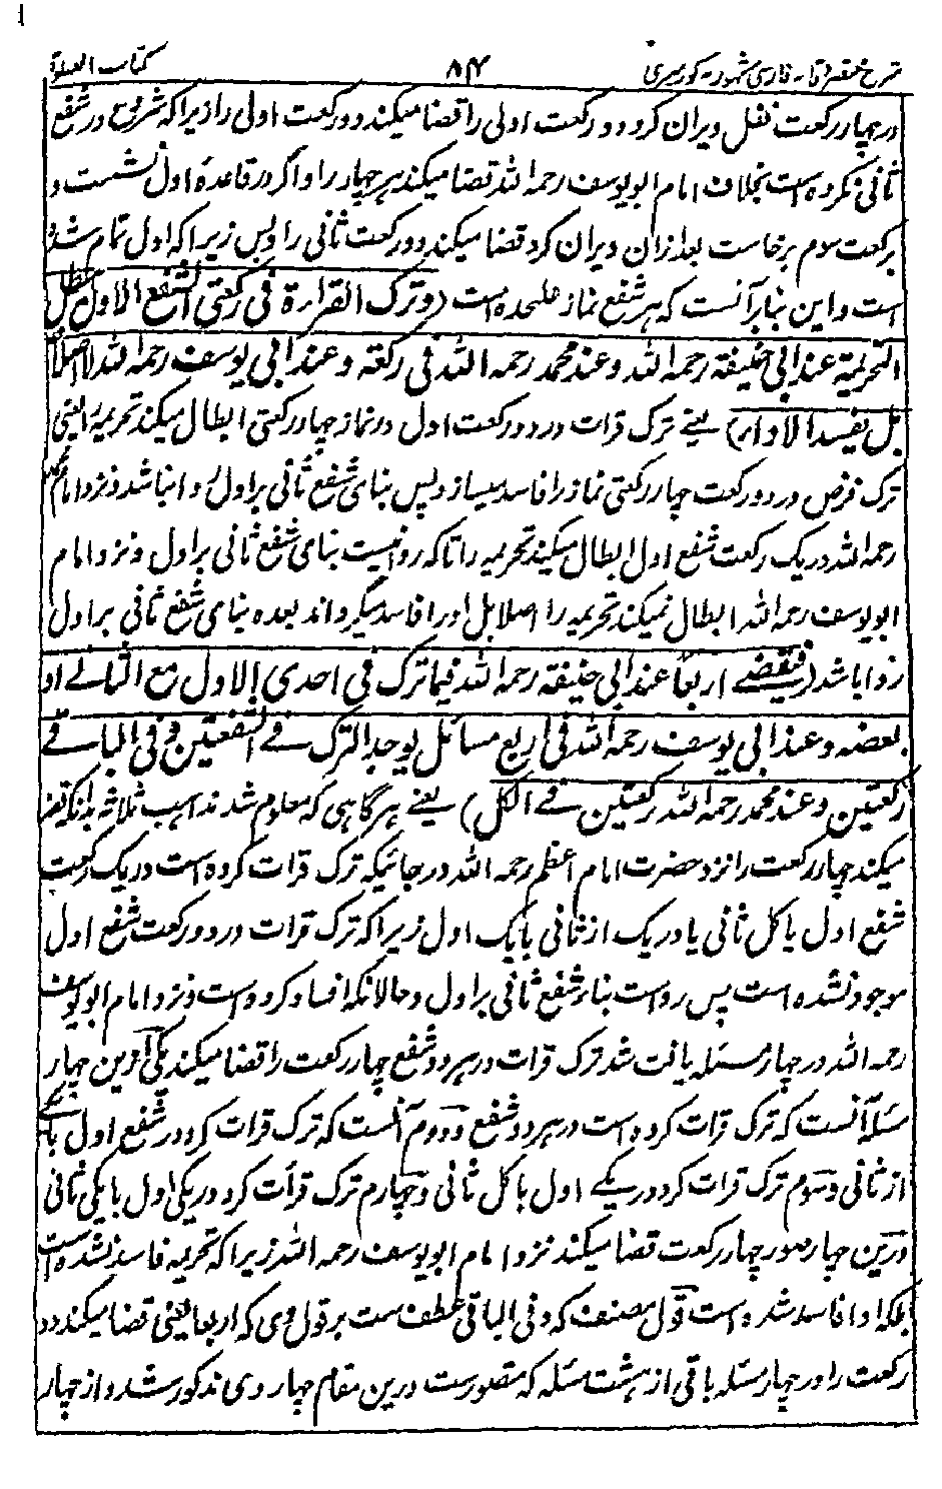 کتاب الصلوة ۸۴ شرح مختصر وقایه فارسی مشهور بکورسری
در چهار رکعت نفل ویران کرد دو رکعت اولی را قضا میکند دو رکعت اولی را زیرا که شروع در شفع
ثانی نکرده است بخلاف امام ابو یوسف رحمه الله قضا میکند هر چهار را و اگر در قاعدهٔ اول نشست و
برکعت سوم برخاست بعد ازان ویران کرد قضا میکند دو رکعت ثانی را و بس زیرا که اول تمام شده
است و این بنا بر آنست که هر شفع نماز علحده است (وترک القراءة فی رکعتی الشفع الاول یبطل
التحریمة عند ابی حنیفة رحمه الله و عند محمد رحمه الله فی رکعة و عند ابی یوسف رحمه الله لا اصلا
بل یفسد الاداء) یعنے ترک قرات در دو رکعت اول در نماز چهار رکعتی ابطال میکند تحریمه را یعنی
ترک فرض در دو رکعت چهار رکعتی نماز را فاسد میسازد پس بنای شفع ثانی بر اول روا نباشد و نزد امام محمد
رحمه الله در یک رکعت شفع اول ابطال میکند تحریمه را تا که روا نیست بنای شفع ثانی بر اول و نزد امام
ابو یوسف رحمه الله ابطال نمیکند تحریمه را اصلا بل ادا را فاسد میگرداند بعده بنای شفع ثانی بر اول
روا باشد (فیقضے اربعا عند ابی حنیفة رحمه الله فیما ترک فی احدی الاول مع الثانے او
بعضه و عند ابی یوسف رحمه الله فی اربع مسائل یوجد الترک فے الشفعین و فی الباقے
رکعتین و عند محمد رحمه الله رکعتین فے الکل) یعنے هرگاهی که معلوم شد مذاهب ثلاثه بدانکه قضا
میکند چهار رکعت را نزد حضرت امام اعظم رحمه الله در جائیکه ترک قرات کرده است در یک رکعت
شفع اول با کل ثانی یا در یک از ثانی با یک اول زیرا که ترک قرات در دو رکعت شفع اول
موجود نشده است پس رواست بناء شفع ثانی بر اول و حالانکه افساد کرده است و نزد امام ابو یوسف
رحمه الله در چهار مسئله یافت شد ترک قرات در هر دو شفع چهار رکعت را قضا میکند یکی ازین چهار
مسئله آنست که ترک قرات کرده است در هر دو شفع و دوم آنست که ترک قرات کرد در شفع اول با یکے
از ثانی و سوم ترک قرات کرد در یکے اول با کل ثانی و چهارم ترک قرأت کرد در یکی اول با یکی ثانی
درین چهار صور چهار رکعت قضا میکند نزد امام ابو یوسف رحمه الله زیرا که تحریمه فاسد نشده است
بلکه ادا فاسد شده است قول مصنف که و فی الباقی عطف ست بر قول وی که اربعا یعنی قضا میکند دو
رکعت را در چهار مسئله باقی از هشت مسئله که مقصورست درین مقام چهار وی مذکور شد و از چهار